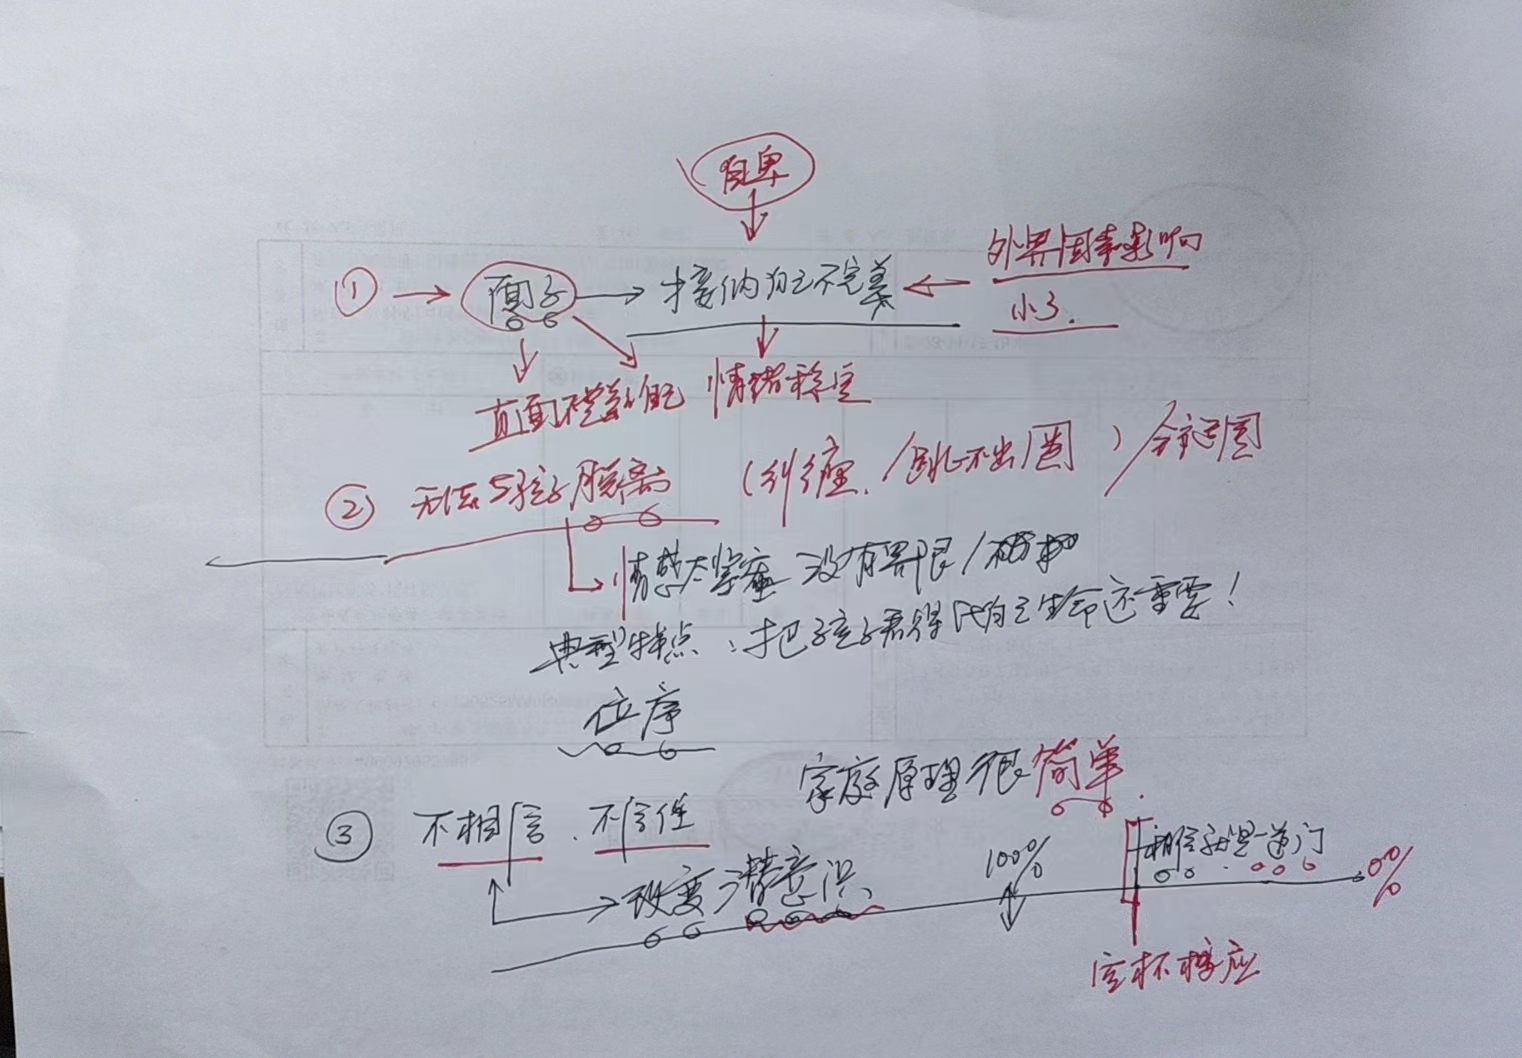 自卑
外界因素影响
① 面子 接纳自己不完美
小了.
直面不完美的自己 情绪稳定
② 无法与孩子脱离 (纠缠、跳不出圈)
情感太紧密 没有界限/
典型特点:把孩子看得比自己生命还重要!
位序
家庭原理很简单
③ 不相信、不信任
100% 相信就是一道门 0%
改变潜意识
空杯效应